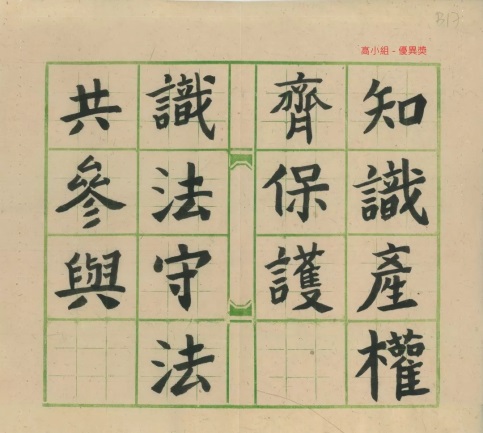 B13
高小組 - 優異獎
知識產權
齊保護
識法守法
共參與